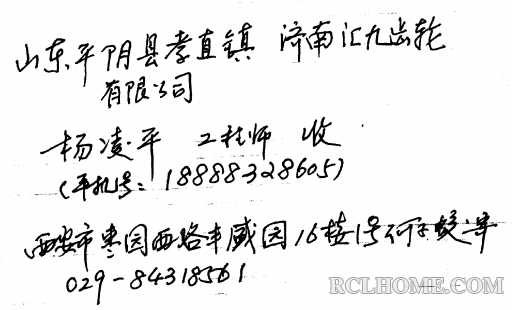 山东平阴县孝直镇 济南汇九齿轮
有限公司
杨凌平 工程师 收
(手机号: 18888328605)
西安市枣园西路丰盛园16楼1号
029-84318561
RCLHOME.COM